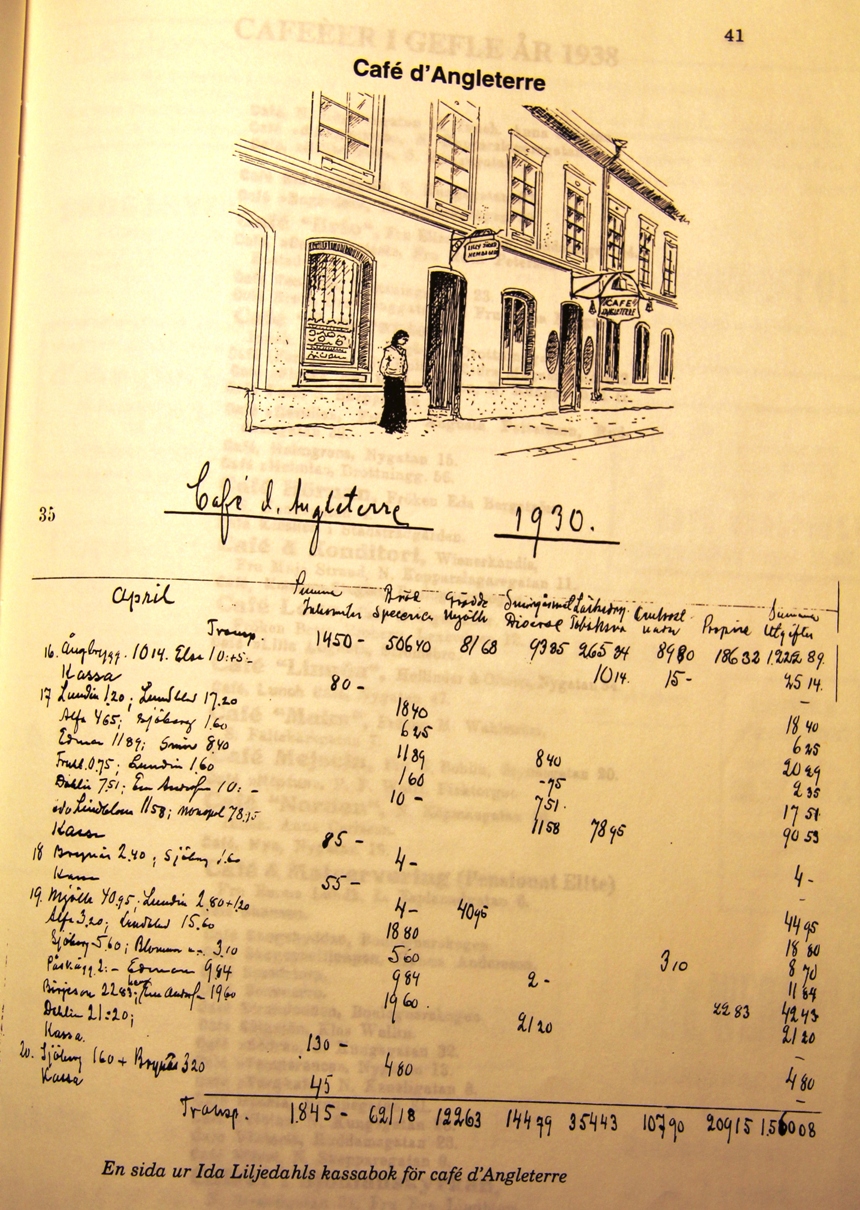 41
Café d'Angleterre
CAFÉ
35
Café d. Angleterre 1930.
April Summa Inkomster Bröd Specerier Grädde Mjölk Diverse Propine Summa Utgifter
Transp. 1450- 50640 8168 9385 26534 8980 18632 1.222 89.
16. 1014. Else 10:+5- 1014. 15- 25 14.
Kassa 80- -
17 Lundin 1.20; Lundblad 17.20 1840 18 40
Alfa 465; Sjöberg 1.60 625 6 25
Edman 1189; 840 1189 840 20 29
0.75; Lundin 1.60 160 -75 2 35
Dehlin 751; 10:- 10- 751. 17 51
1158; 78.95 1158 7895 90 53
Kassa 85-
18 Brynäs 2.40; Sjöberg 1.60 4- 4-
Kassa 55- -
19. Mjölk 4095; Lundin 2.80+1.20 4- 4095 44 95
Alfa 3.20; Lundblad 15.60 1880 18 80
Sjöberg 5.60; 3.10 560 310 8 70
Påskägg 2:- Edman 984 984 2- 11 84
Börjeson 2283; 1960 1960. 2283 4243
Dehlin 21:20; 2120 2120
Kassa. 130- -
20. Sjöberg 160+Brynäs 320 480 480
Kassa 45 -
Transp. 1.845- 62118 12263 14479 35443 10790 20915 1.56008
En sida ur Ida Liljedahls kassabok för café d'Angleterre